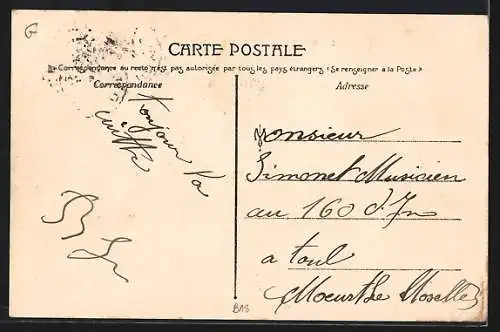 CARTE POSTALE
« Correspondance au recto n'est pas autorisée par tous les pays étrangers (Se renseigner à la Poste) »
Correspondance
Adresse
Toujours ta
Monsieur
Simonet Musicien
au 160 d'In
a toul
Meurthe Moselle